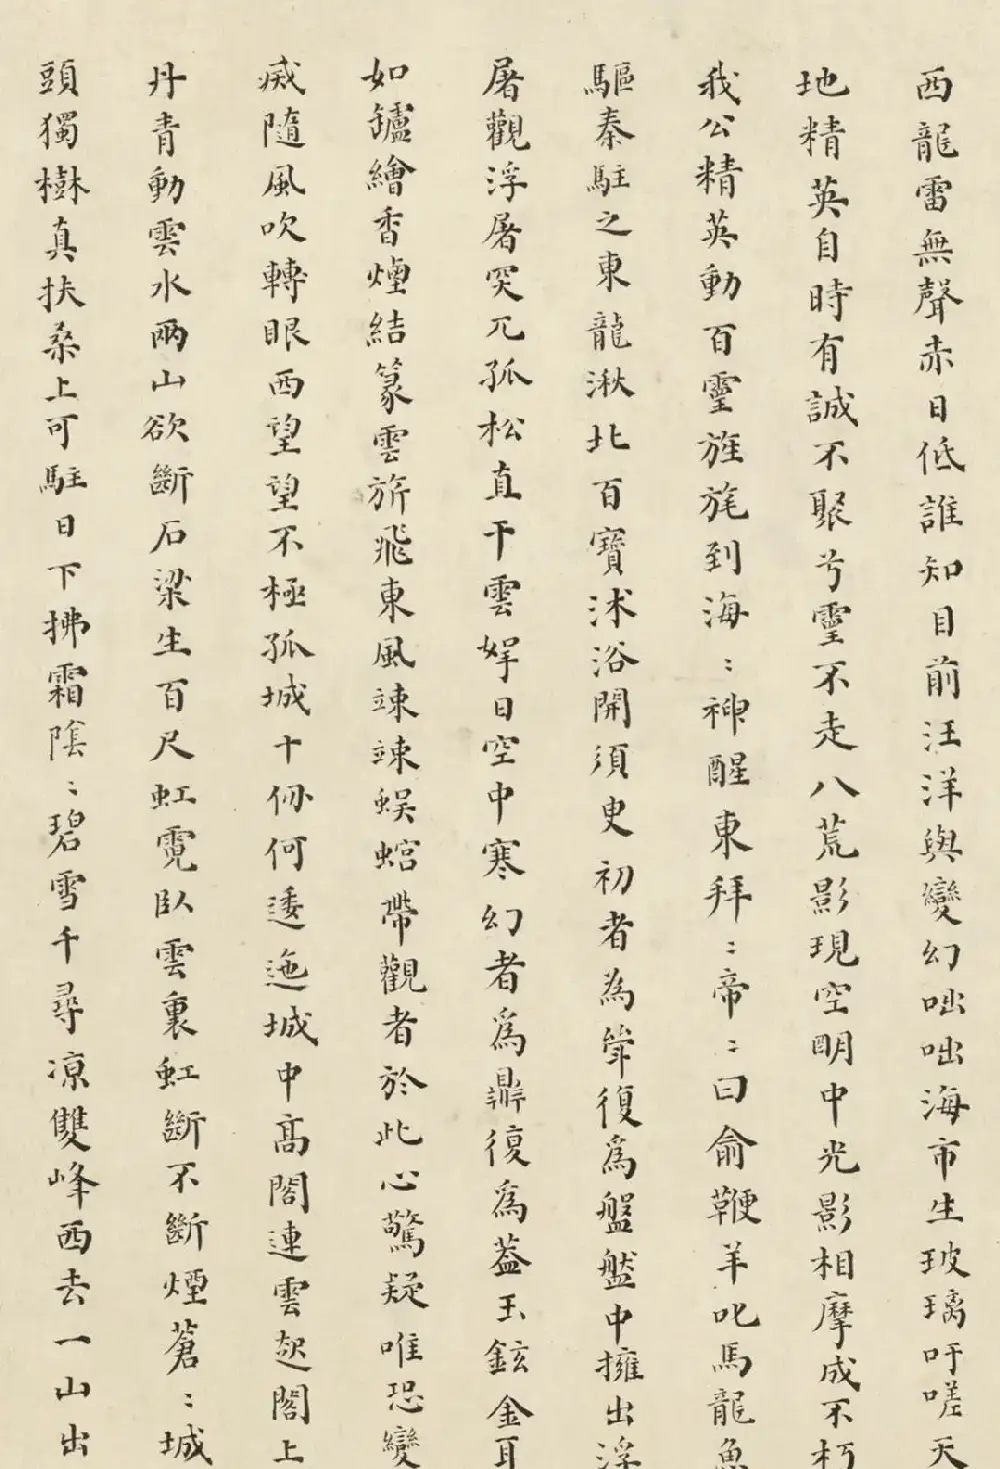 西龍雷無聲赤日低誰知目前汪洋與變幻咄咄海市生玻璃吁嗟天
地精英自時有誠不聚兮靈不走八荒影現空明中光影相摩成不朽
我公精英動百靈旌旄到海〻神醒東拜〻帝〻曰俞鞭羊叱馬龍魚
驅秦駐之東龍湫北百寶沐浴開須臾初者為聳復為盤盤中擁出浮
屠觀浮屠突兀孤松直干雲娙日空中寒幻者為鼎復為蓋玉鉉金耳
如鑪繪香煙結篆雲旂飛東風竦竦蜈蜙帶觀者於此心驚疑唯恐變
滅隨風吹轉眼西望望不極孤城十仞何逶迤城中高閣連雲起閣上
丹青動雲水兩山欲斷石梁生百尺虹霓臥雲裏虹斷不斷煙蒼〻城
頭獨樹真扶桑上可駐日下拂霜陰〻碧雪千尋凉雙峰西去一山出